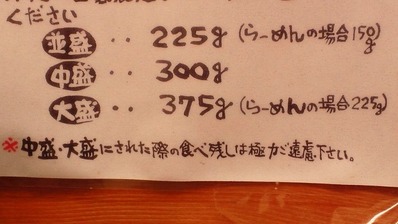 ください
並盛 ‥ 225g (らーめんの場合150g)
中盛 ‥ 300g
大盛 ‥ 375g (らーめんの場合225g)
※中盛・大盛にされた際の食べ残しは極力ご遠慮下さい。